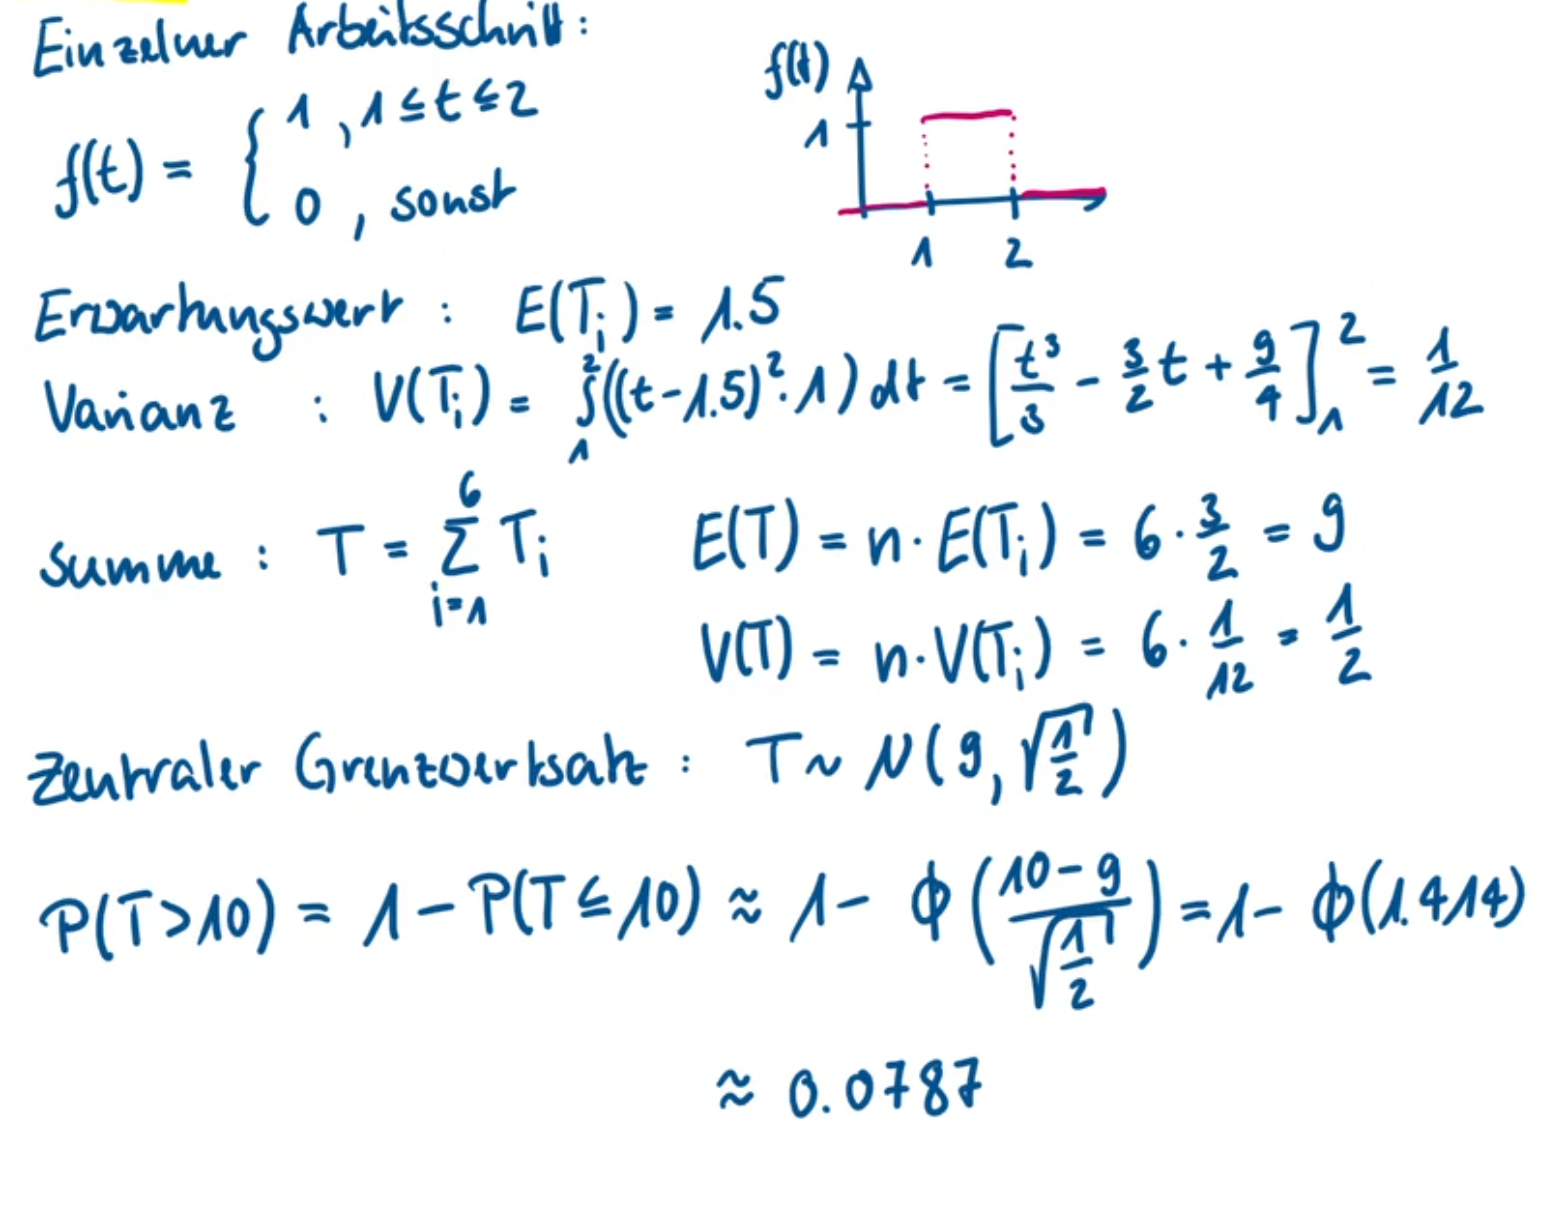 Einzelner Arbeitsschritt:
f(t) = { 1 , 1 ≤ t ≤ 2
0 , sonst
f(t)
1
1 2
Erwartungswert : E(T_i) = 1.5
Varianz : V(T_i) = ∫_1^2 ((t-1.5)^2 · 1) dt = [t^3/3 - 3/2 t + 9/4]_1^2 = 1/12
Summe : T = Σ_{i=1}^6 T_i E(T) = n · E(T_i) = 6 · 3/2 = 9
V(T) = n · V(T_i) = 6 · 1/12 = 1/2
Zentraler Grenzwertsatz : T ~ N(9, √(1/2))
P(T>10) = 1 - P(T ≤ 10) ≈ 1 - ϕ((10-9)/√(1/2)) = 1 - ϕ(1.414)
≈ 0.0787